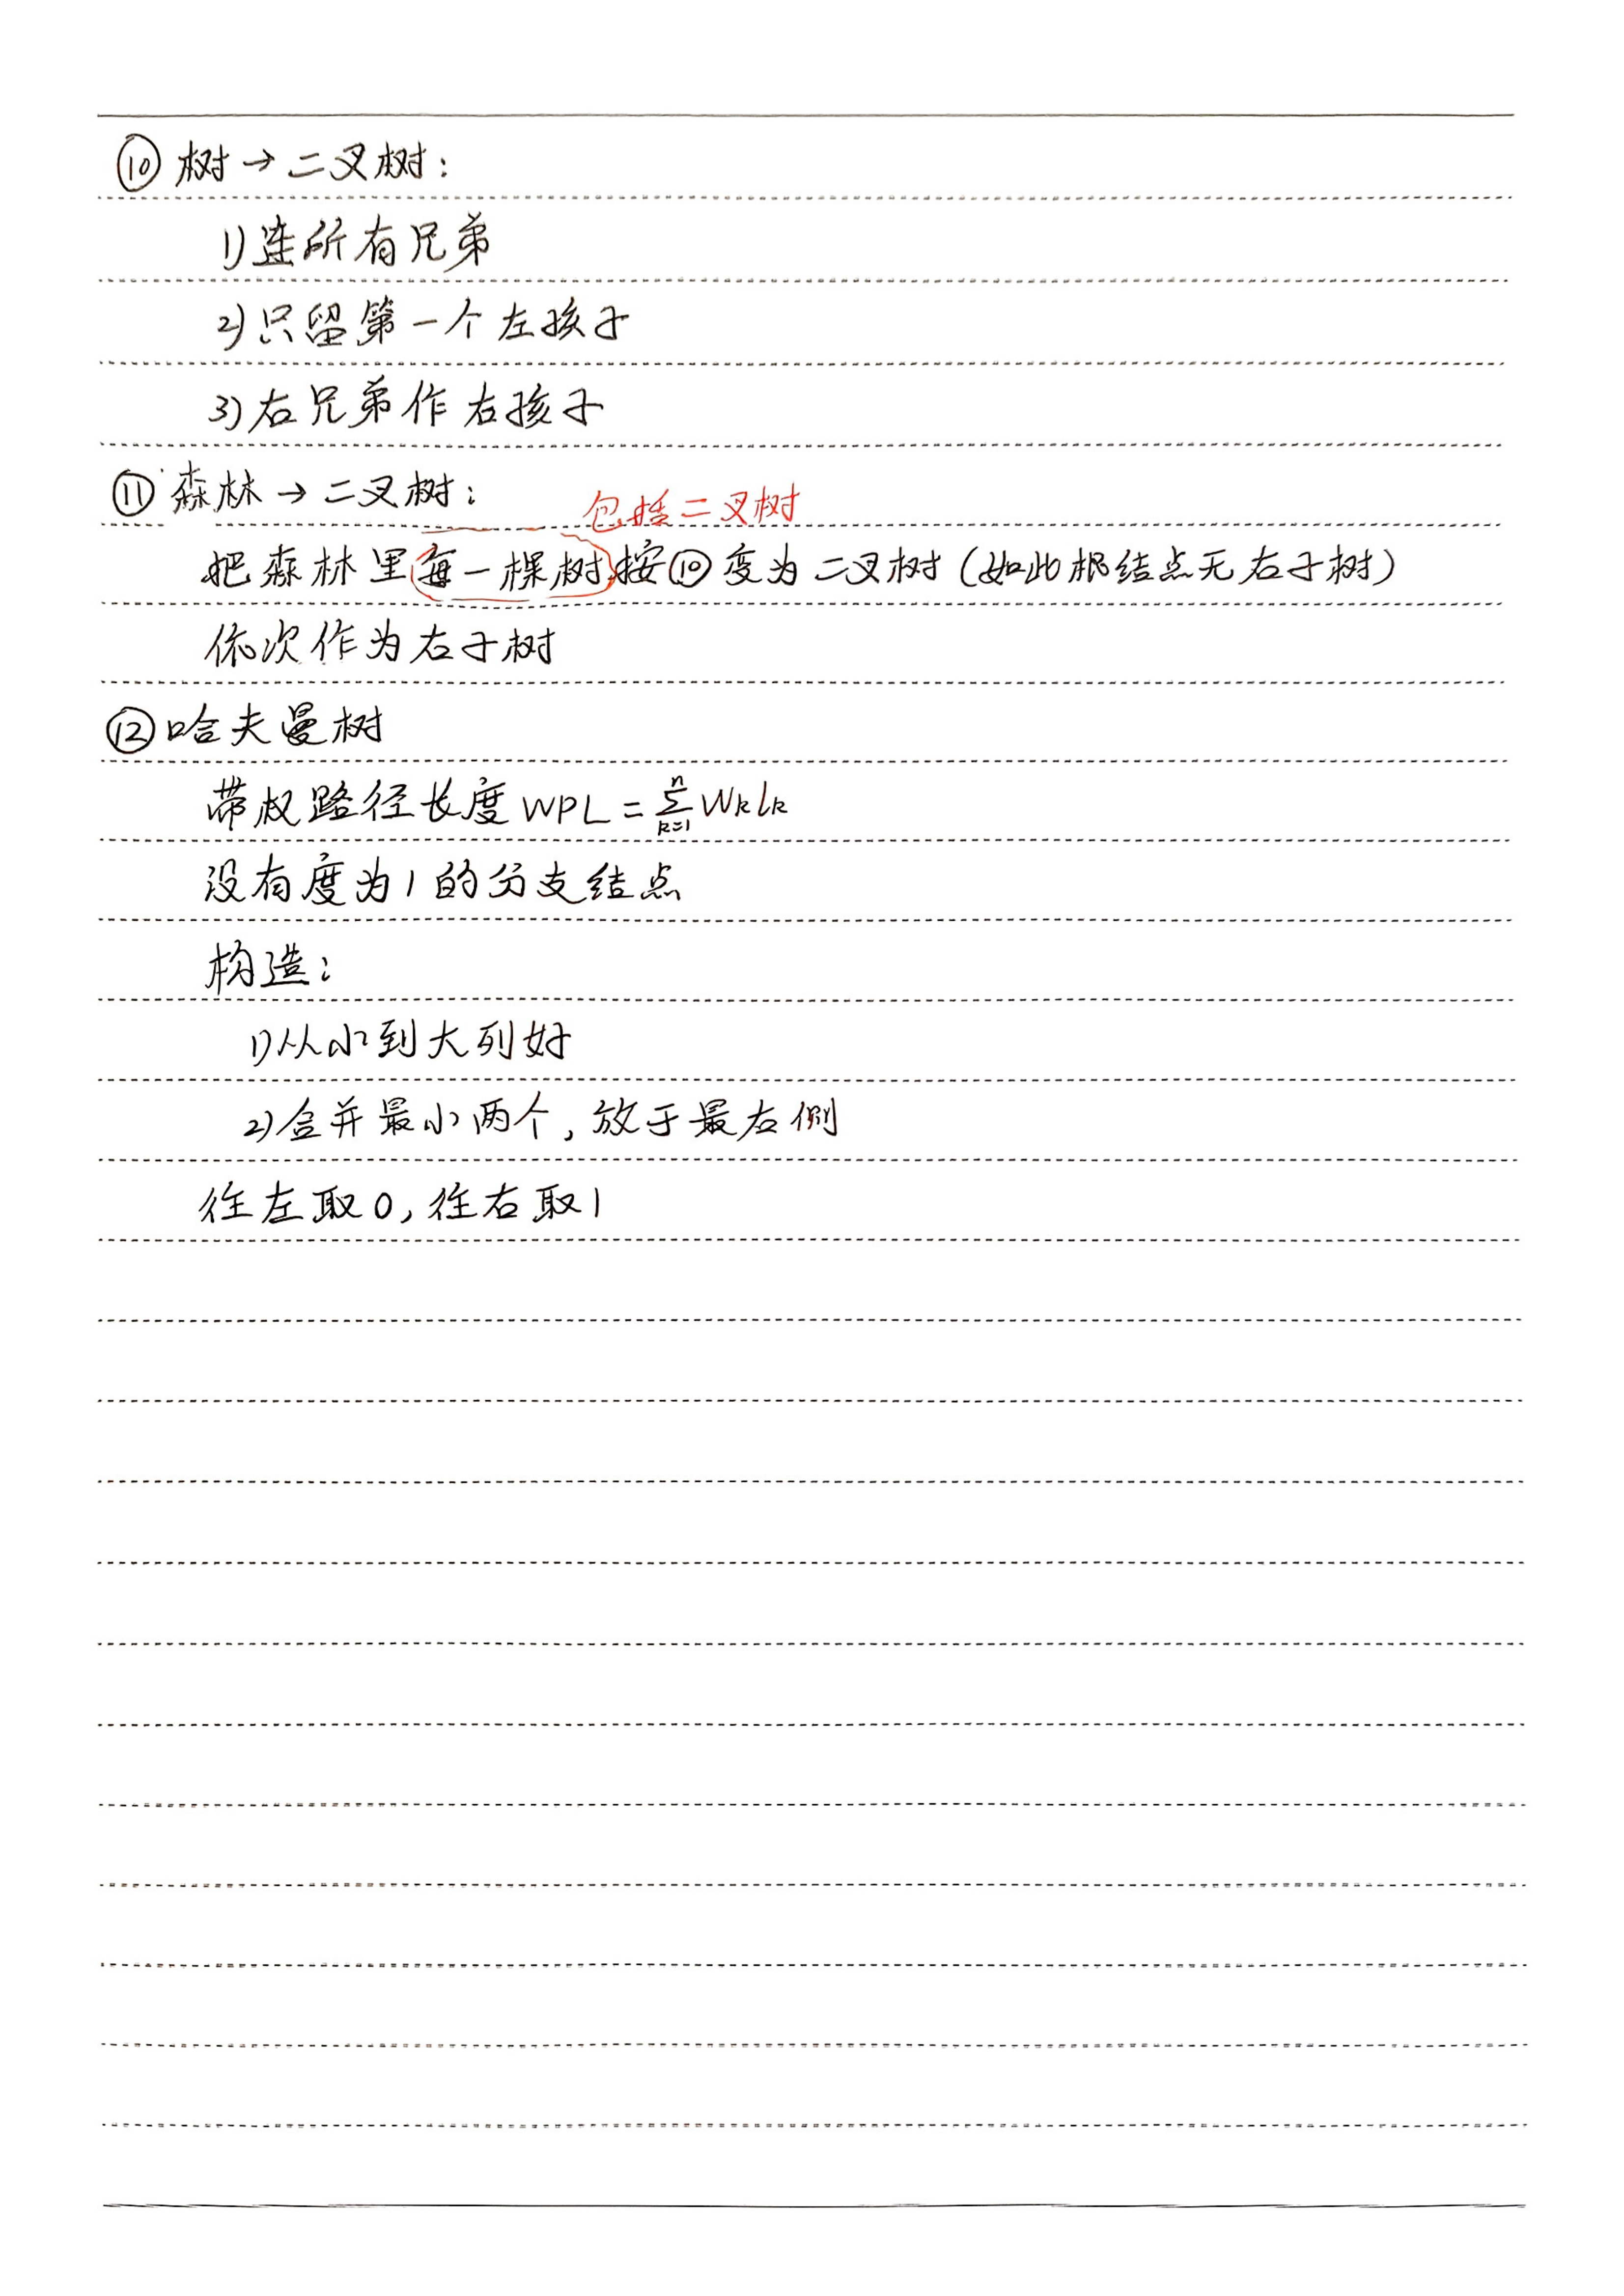 ⑩ 树→二叉树:
1)连所有兄弟
2)只留第一个左孩子
3)右兄弟作右孩子
⑪ 森林→二叉树:
包括二叉树
把森林里每一棵树按⑩变为二叉树(如此根结点无右子树)
依次作为右子树
⑫哈夫曼树
带权路径长度WPL=∑ⁿₖ₌₁Wₖlₖ
没有度为1的分支结点
构造:
1)从小到大列好
2)合并最小两个,放于最右侧
往左取0,往右取1